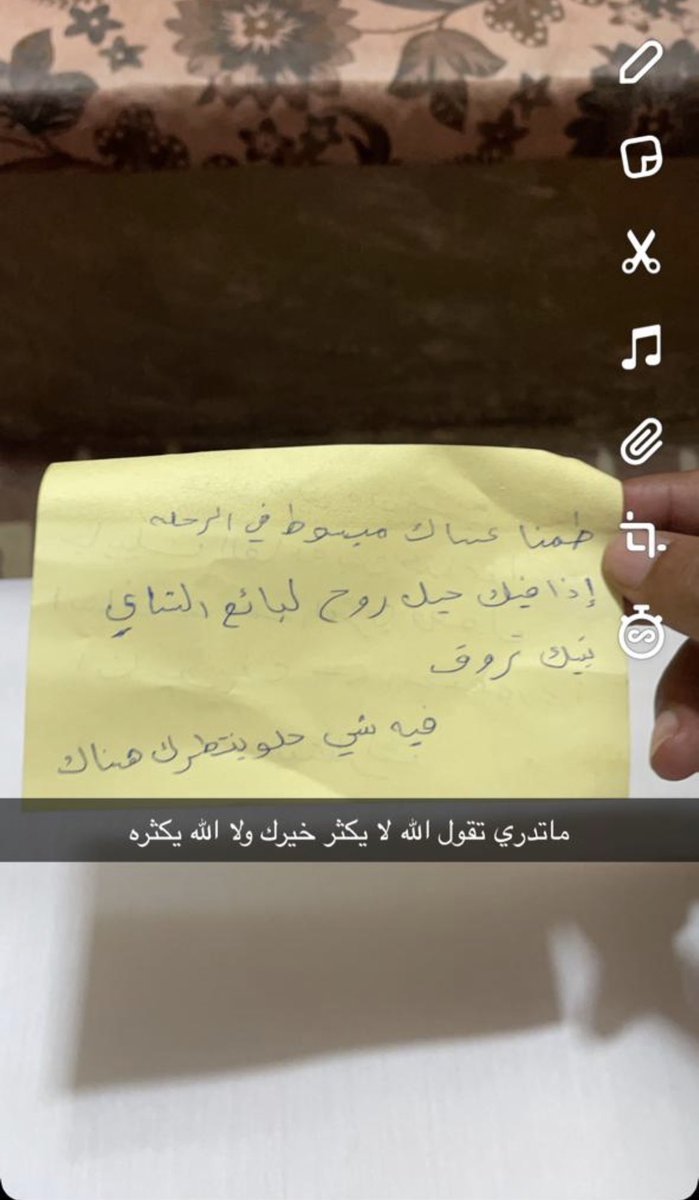 طمنا عساك مبسوط في الرحله
إذا فيك حيل روح لبائع الشاي
نبيك تروق
فيه شي حلو ينتظرك هناك
ماتدري تقول الله لا يكثر خيرك ولا الله يكثره